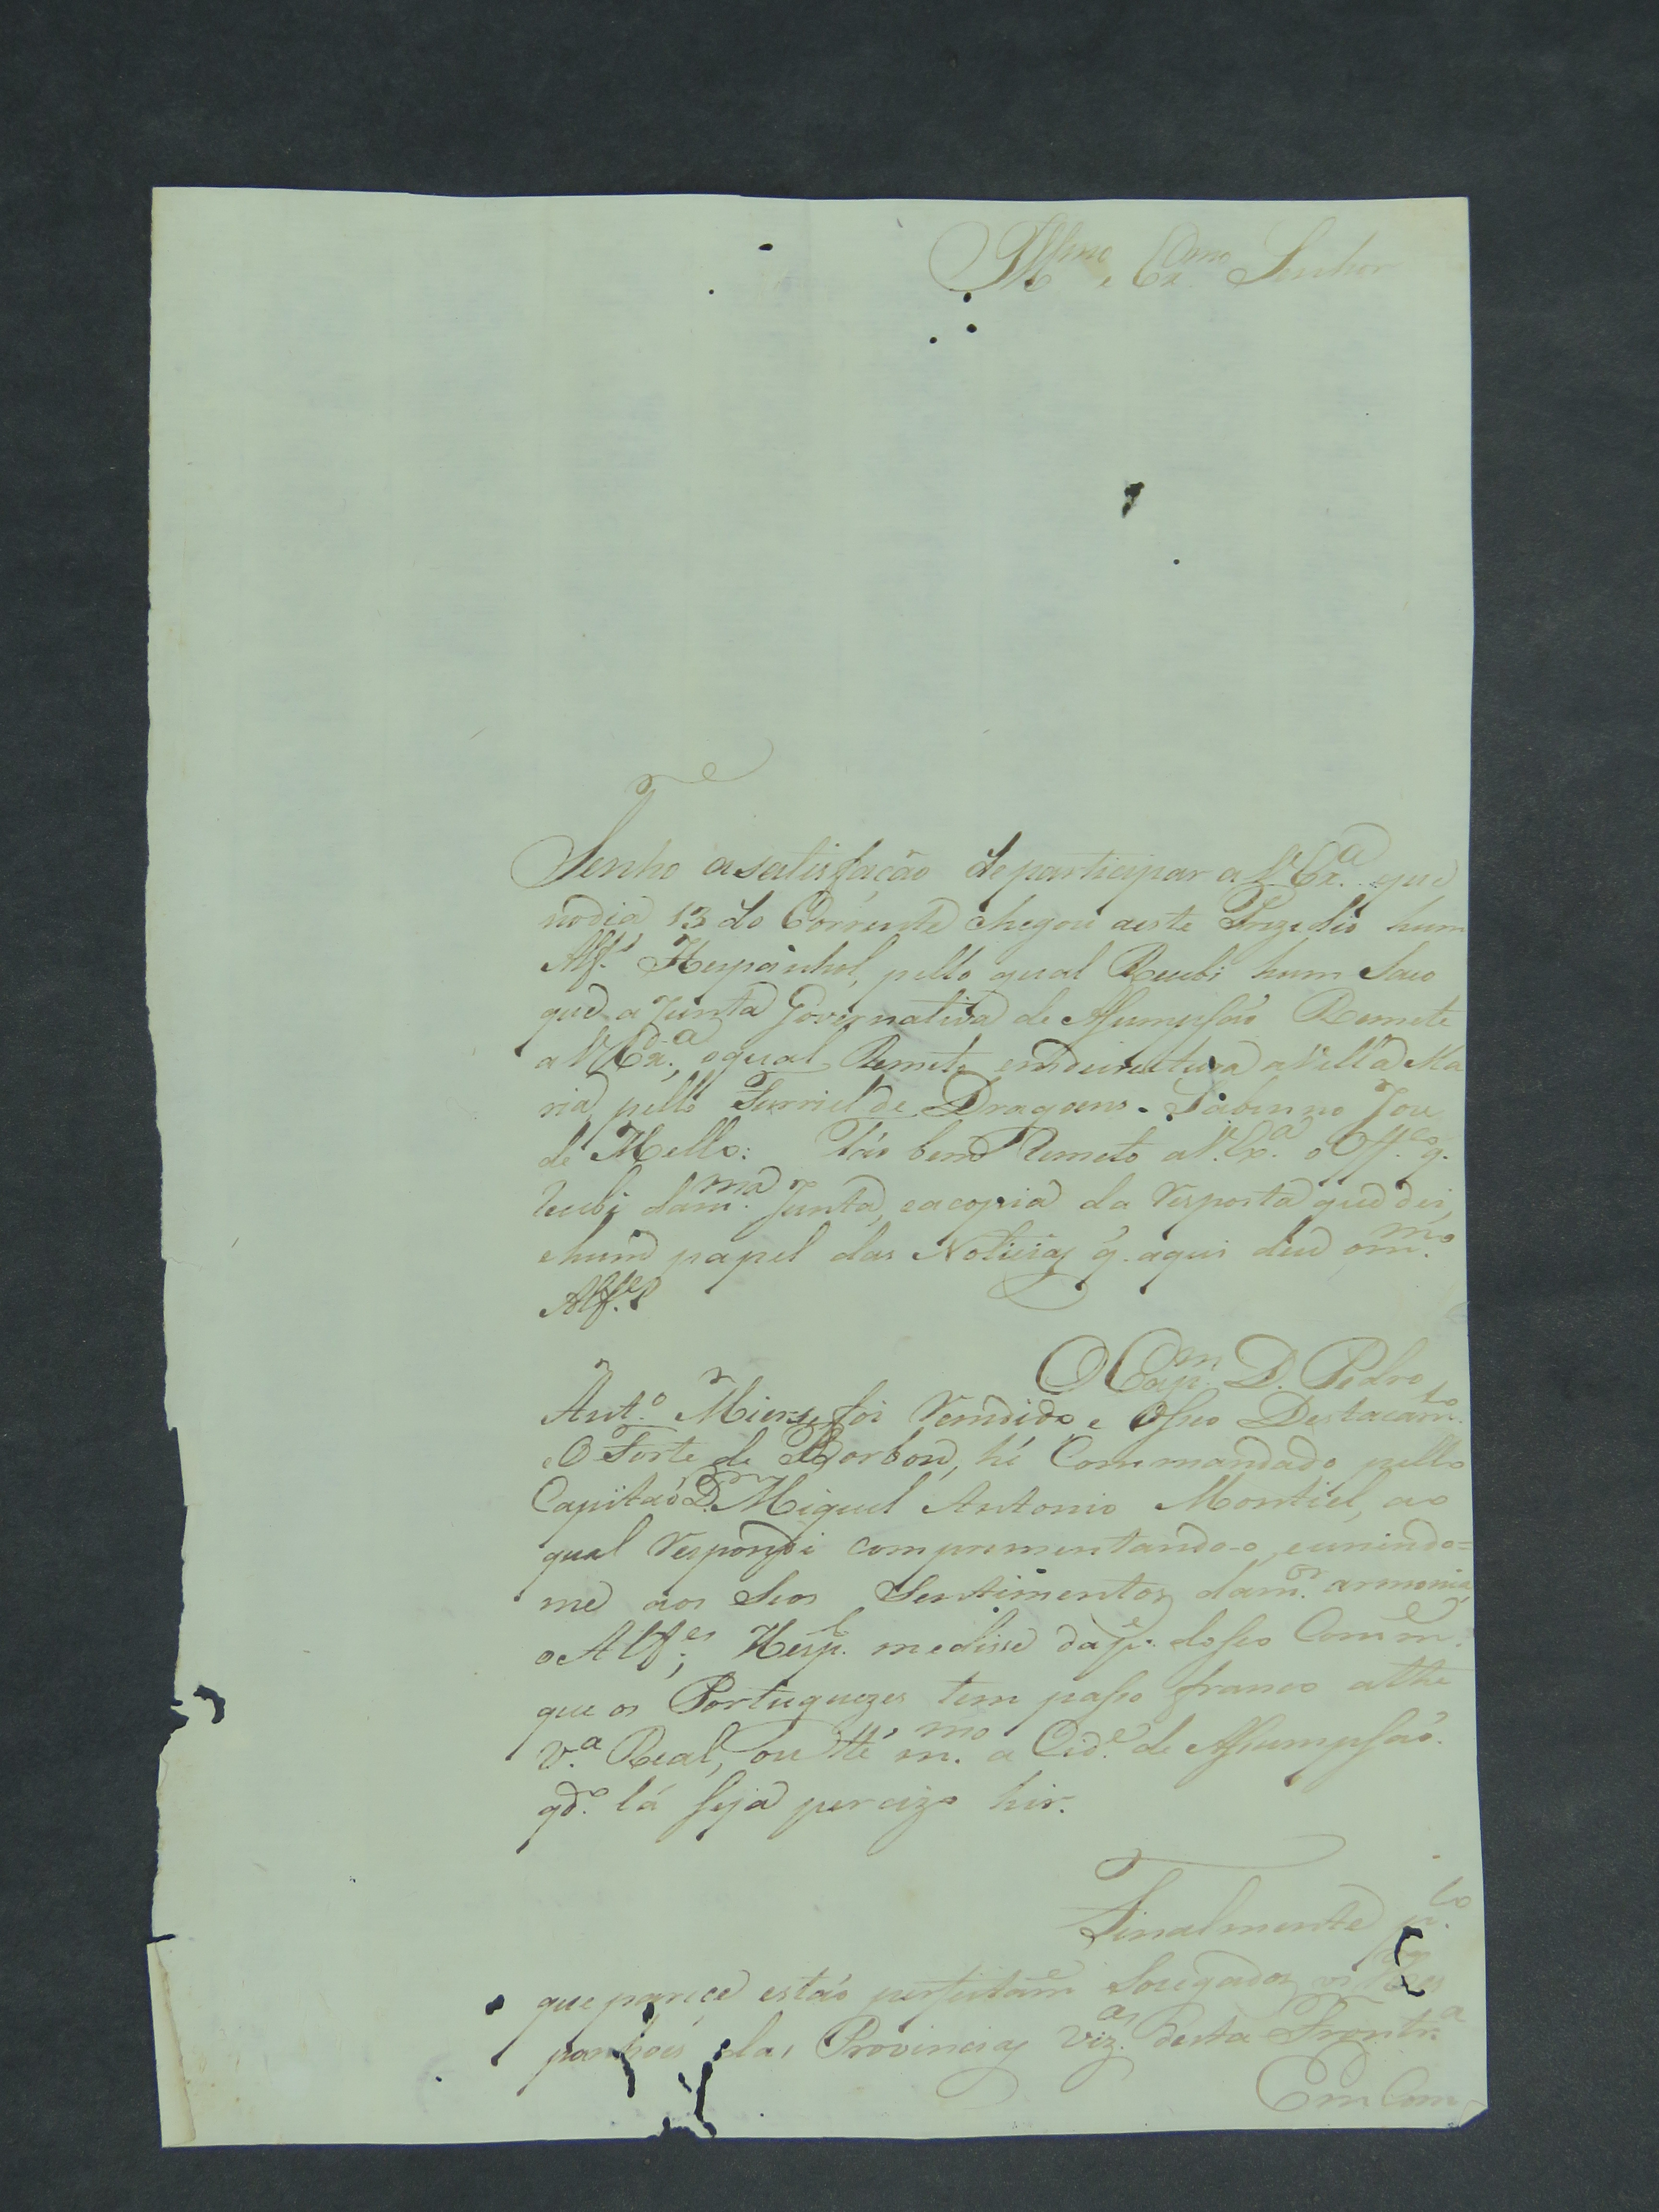 Illmo e Exmo Senhor
Tenho asatisfação departicipar a V.Exa. que
nodia 13 do Corrente chegou aeste Prezidio hum
Alfs. Hespanhol, pello qual Recebi hum Saco
que a Junta Governativa de Assumpsaó Remete
a V.Exa., oqual Remeto emdireitura aVilla Ma
ria pello Furriel de Dragoens Sabinno Joze
de Mello: Táo bem Remeto aV.Exa. o Offco. q.
recebi dama. Junta, eacopia da resposta quedei,
ehum papel das Noticias q. aqui deu omo.
Alfes.
O Capm. D. Pedro
Anto. Miers, foi rendido e oseo Destacamto.
O Forte de Borbon, hé Commandado pello
Capitaó D. Miguel Antonio Montiel, ao
qual respondi comprimentando-o, eunindo=
me aos Seos Sentimentos damor. armonia,
o Alfes; Hespl. medisse dape. doseo Comme.
que os Portuguezes tem passo franco athe
Va. Real, ou tté mmo. a Cide. de Assumpsaó.
qdo. lá seja percizo hir.
Finalmente plo.
que parece estaó perfeitame Socegados os Hes
panhóes das Provincias Vizas. desta Frontra
Em Com